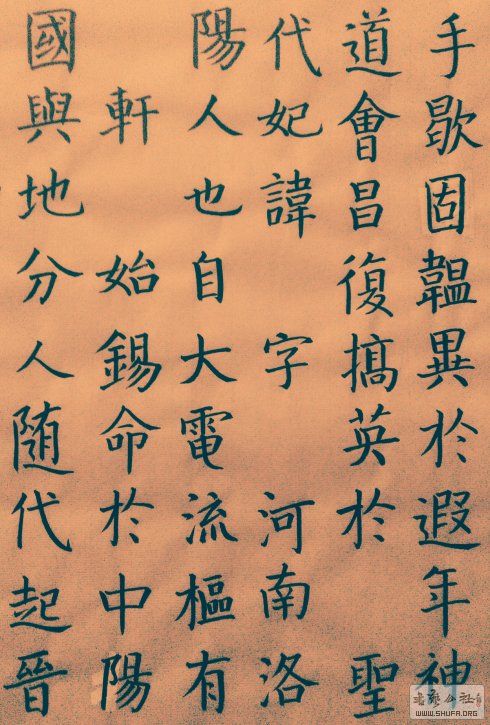 手歇固韞異於遐年神
道會昌復摛英於 聖
代妃諱 字 河南洛
陽人也自大電流樞有
軒 始錫命於中陽
國與地分人随代起晉
書法公社
WWW.SHUFA.ORG